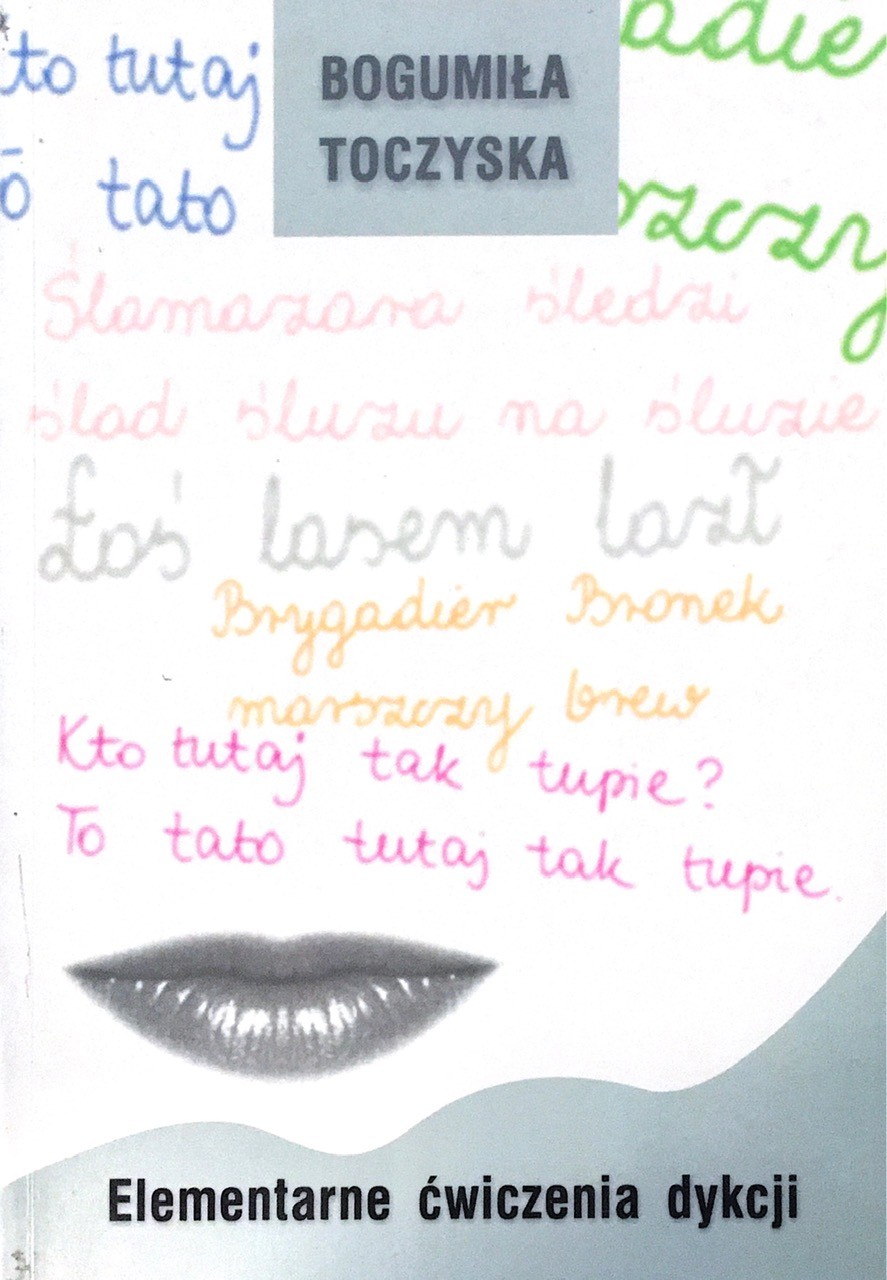 to tutaj
BOGUMIŁA
TOCZYSKA
adie
ō tato
szczy
Ślamazara śledzi
ślad śluzu na śluzie
Łoś lasem lazł
Brygadier Bronek
marszczy brew
Kto tutaj tak tupie?
To tato tutaj tak tupie.
Elementarne ćwiczenia dykcji